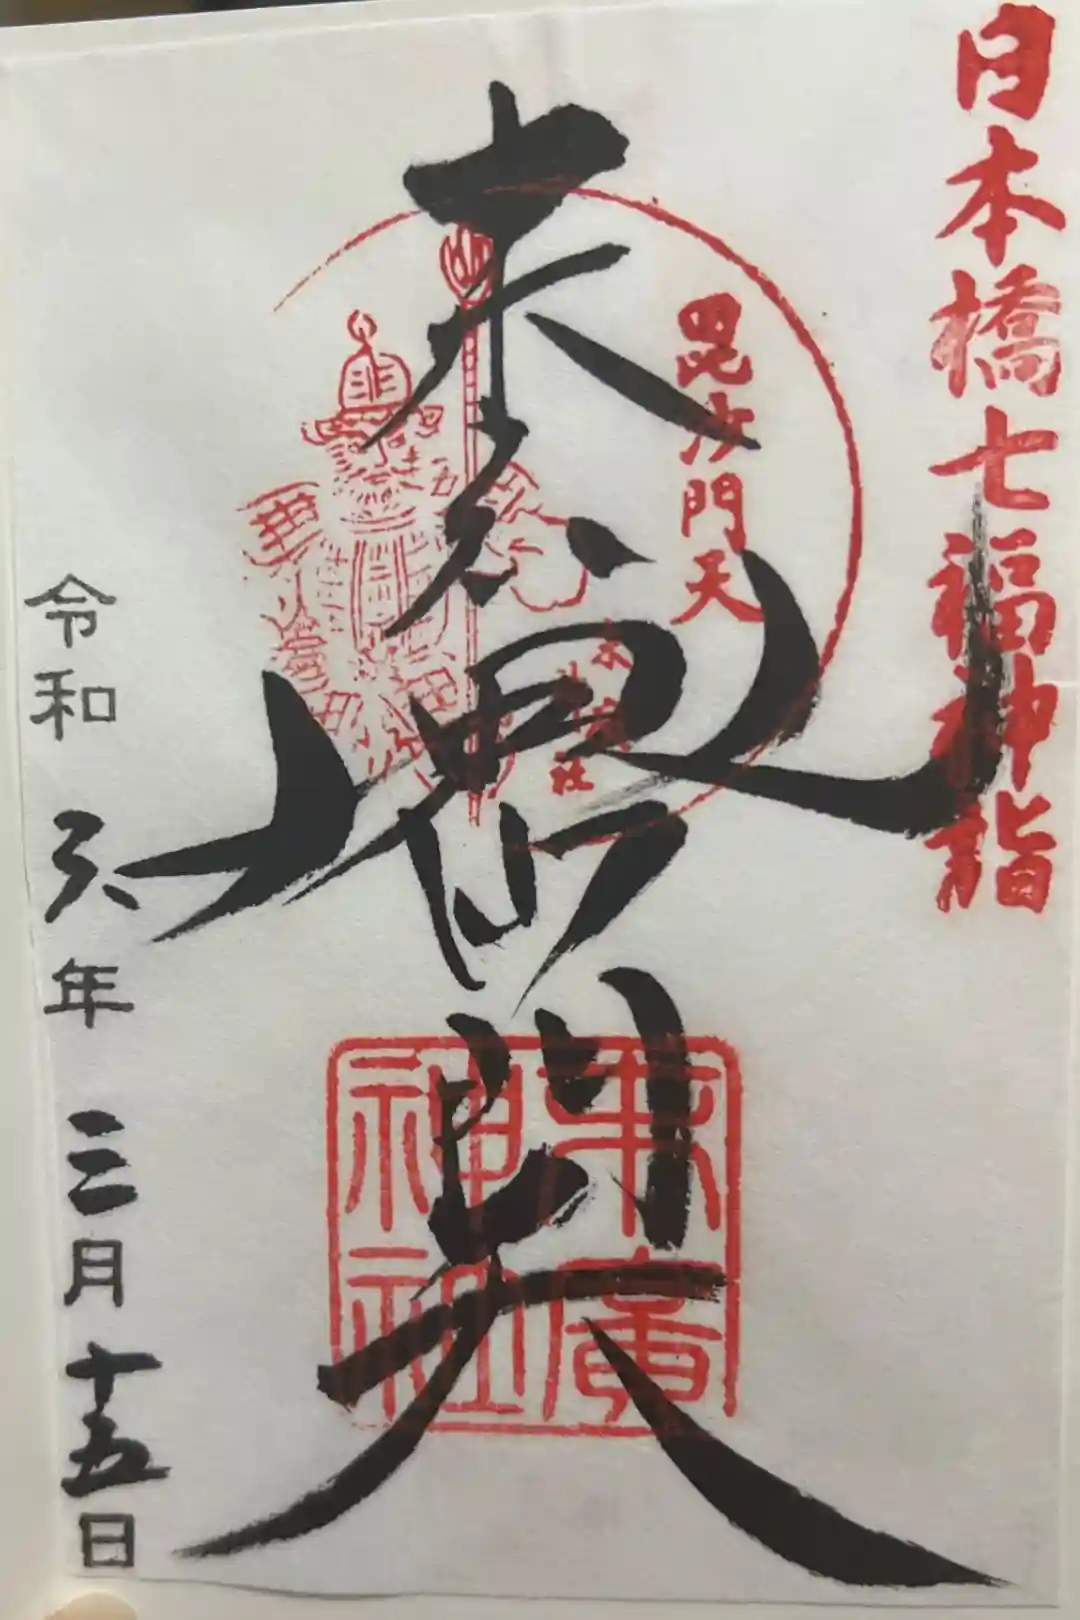 日本橋七福神詣
毘沙門天
末廣神社
末廣
毘沙門天
末廣
神社
令和六年三月十五日